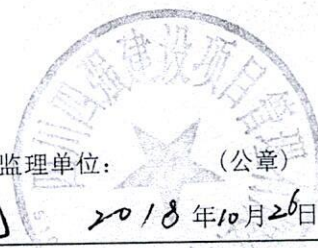 四川四强建设项目管理
监理单位: (公章)
2018年10月26日